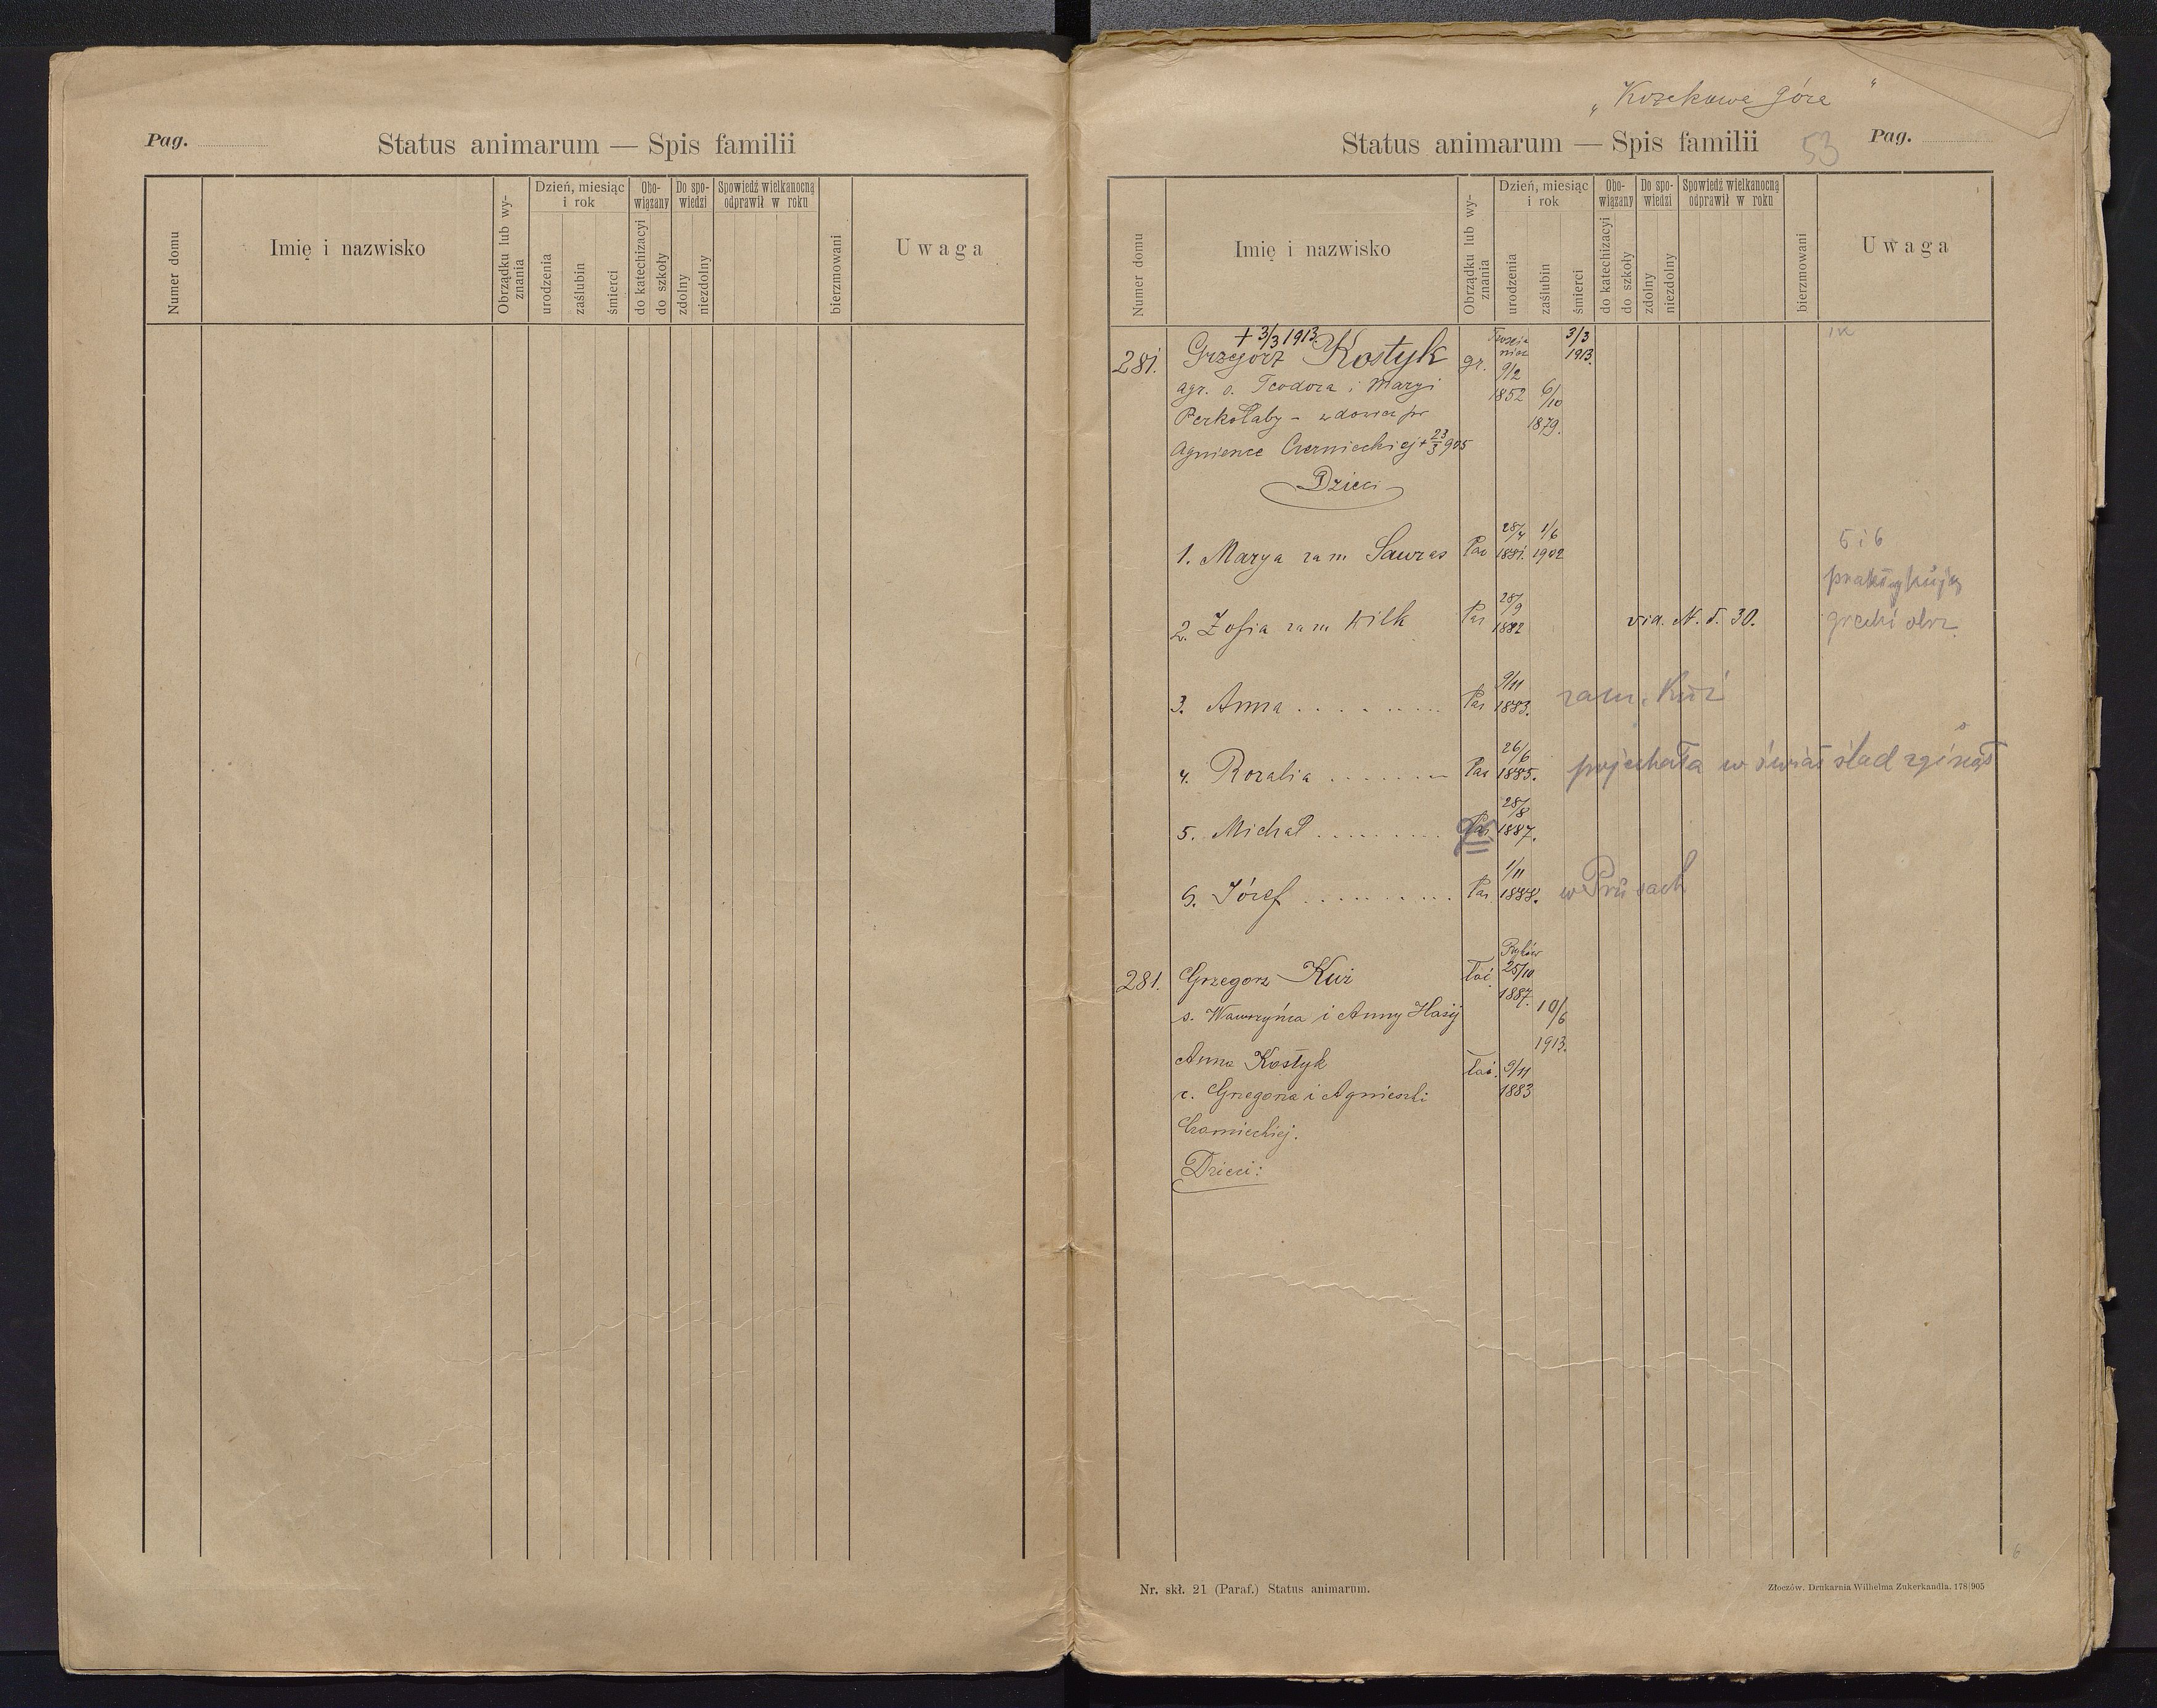 Pag.
Status animarum — Spis familii
Numer domu
Imię i nazwisko
Obrządku lub wyznania
Dzień, miesiąc i rok
urodzenia
zaślubin
śmierci
Obowiązany
do katechizacyi
do szkoły
Do spowiedzi
zdolny
niezdolny
Spowiedź wielkanocną odprawił w roku
bierzmowani
Uwaga
„Kozekowa góra"
Status animarum — Spis familii
53
Pag.
Numer domu
Imię i nazwisko
Obrządku lub wyznania
Dzień, miesiąc i rok
urodzenia
zaślubin
śmierci
Obowiązany
do katechizacyi
do szkoły
Do spowiedzi
zdolny
niezdolny
Spowiedź wielkanocną odprawił w roku
bierzmowani
Uwaga
+ 3/3 1913.
281. Grzegorz Kostyk gr. 9/2 1852 6/10 1879. 3/3 1913.
agr. s. Teodora i Maryi
Perkołaby - wdowiec po
Agnience Czernieckiej + 23/3 905
Dzieci
1. Marya zam Sawras 28/4 1881. 1/6 1902
5 i 6
praktykują
2. Zofia zam Wilk 28/9 1882 vid. N. d. 30.
grecki obrz.
3. Anna 9/11 1883. zam. Kuź
4. Rozalia 26/6 1885. pojechała w świat ślad zginął
5. Michał gr. 28/8 1887.
6. Józef 1/11 1888. w Prusach
281. Grzegorz Kuź łać. 25/10 1887. 10/6 1913.
s. Wawrzyńca i Anny Hasij
Anna Kostyk łać. 9/11 1883
c. Grzegorza i Agnieszki
Czarnieckiej.
Dzieci:
Nr. skł. 21 (Paraf.) Status animarum.
Złoczów. Drukarnia Wilhelma Zukerkandla. 178|905